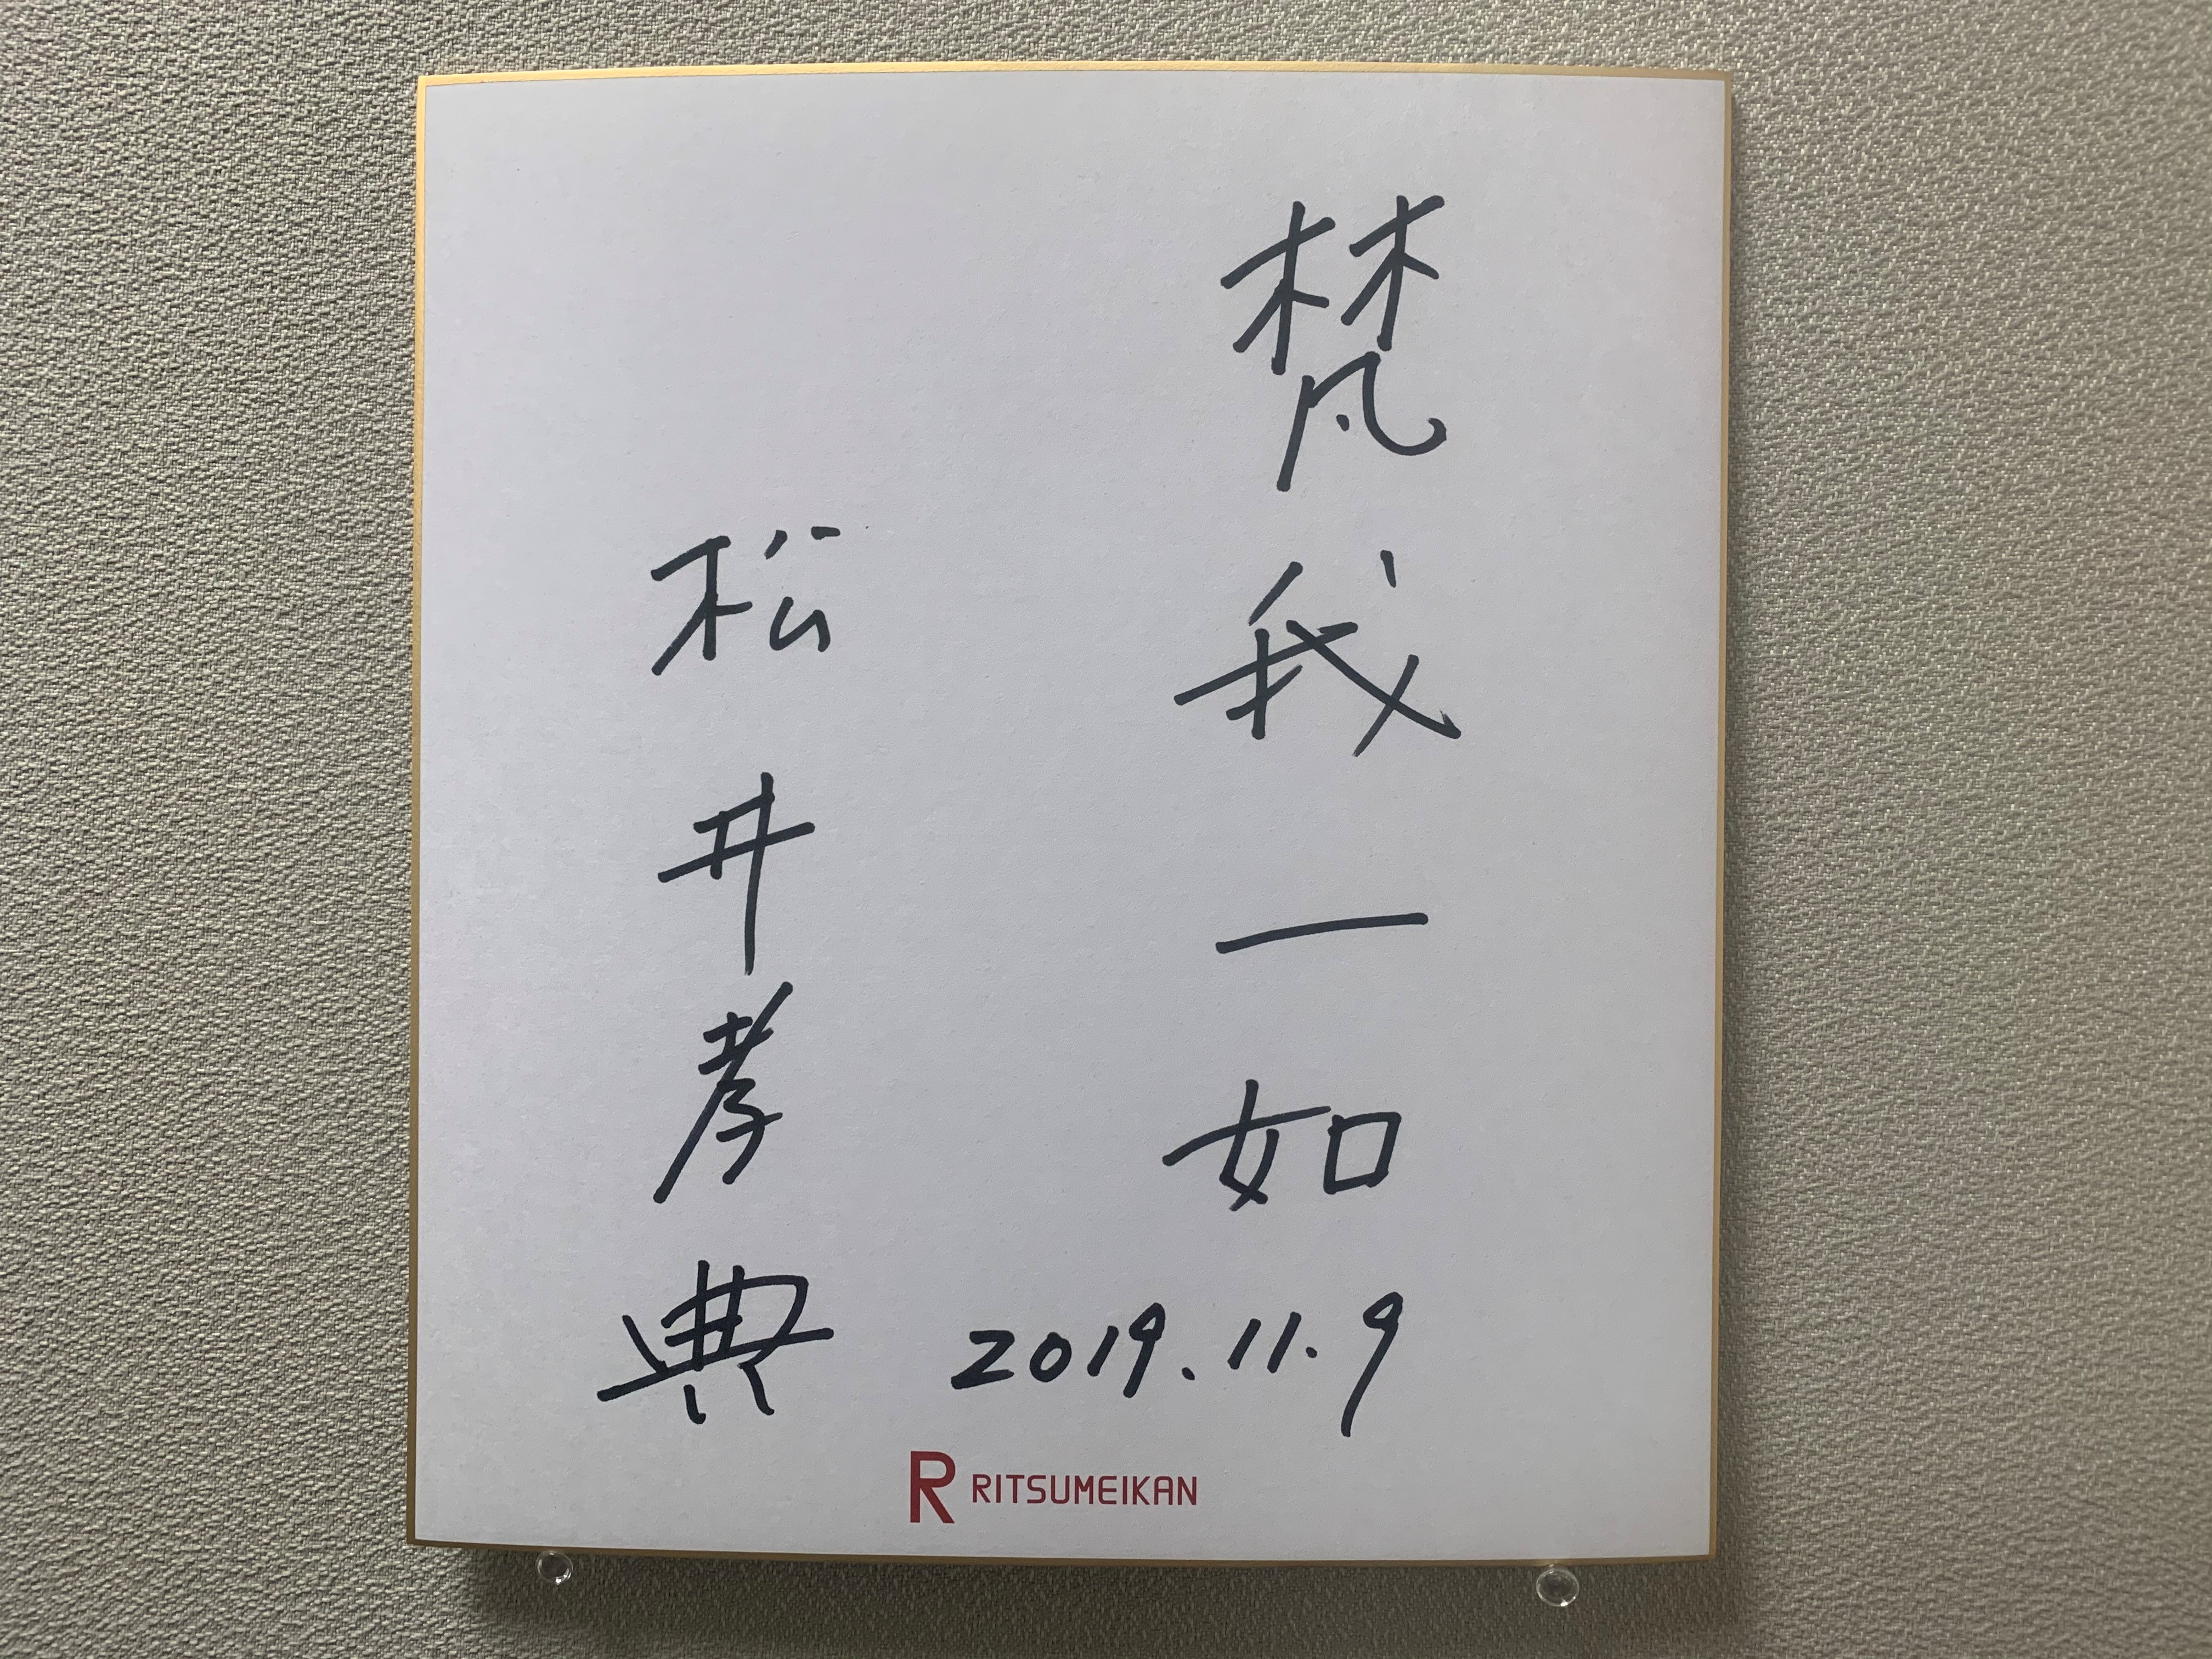 梵我一如
2019.11.9
松井孝典
R RITSUMEIKAN